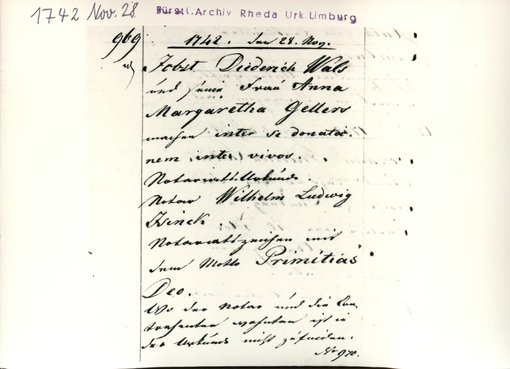 1742 Nov. 28
Fürstl. Archiv Rheda Urk. Limburg
969
1742. den 28. Nov.
Jobst Diederich Wals
und seine Frau Anna
Margaretha Gellers
machen inter se donatio-
nem inter vivos.
Notariats-Urkunde.
Notar Wilhelm Ludwig
Isinck.
Notariatszeichen mit
dem Motto Primitias
Deo.
Wo der Notar und die Con-
trahenten wohnten ist in
der Urkunde nicht zu finden.
No 970.